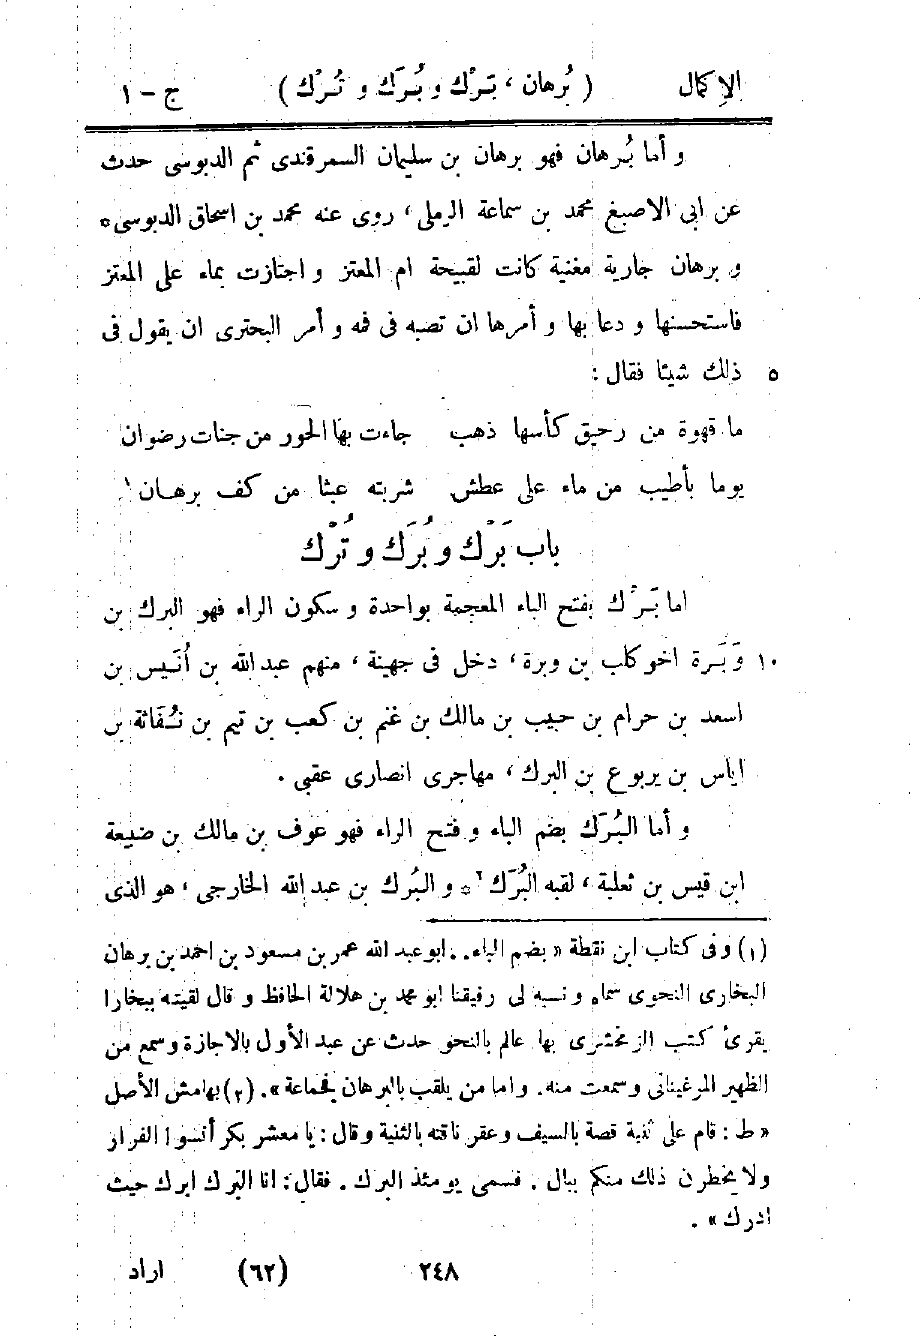 الإكمال ( بُرهان ، بَرْك و بُرَك و تُرْك ) ج - ١
و أما بُرهان فهو برهان بن سليمان السمرقندى ثم الدبوسى حدث
عن ابى الاصبغ محمد بن سماعة الرملى ، روى عنه محمد بن اسحاق الدبوسى *
و برهان جارية مغنية كانت لقبيحة ام المعتز و اجتازت بماء على المعتز
فاستحسنها و دعا بها و أمرها ان تصبه فى فمه و أمر البحترى ان يقول فى
٥ ذلك شيئا فقال :
ما قهوة من رحيق كأسها ذهب جاءت بها الحور من جنات رضوان
يوما بأطيب من ماء على عطش شربته عبثا من كف برهـان ١
باب بَرْك و بُرَك و تُرْك
اما بَرْك بفتح الباء المعجمة بواحدة و سكون الراء فهو البرك بن
١٠ وَبَرة اخو كلب بن وبرة ، دخل فى جهينة ، منهم عبد الله بن أُنَيس بن
اسعد بن حرام بن حبيب بن مالك بن غنم بن كعب بن تيم بن نُفَاثة بن
اياس بن يربوع بن البرك ، مهاجرى انصارى عقبى .
و أما البُرَك بضم الباء و فتح الراء فهو عوف بن مالك بن ضبيعة
ابن قيس بن ثعلبة ، لقبه البُرَك ٢ * و البُرك بن عبد الله الخارجى ، هو الذى
(١) وفى كتاب ابن نقطة « بضم الباء . . ابو عبد الله عمر بن مسعود بن احمد بن برهان
البخارى النحوى سماه و نسبه لى رفيقنا ابو محمد بن هلالة الحافظ و قال لقيته ببخارا
يقرئ كتب الزمخشرى بها عالم بالنحو حدث عن عبد الأول بالاجازة و سمع من
الظهير المرغينانى و سمعت منه. واما من يلقب بالبرهان فجماعة ». (٢) بهامش الأصل
« ط : قام على ثنية قصة بالسيف و عقر ناقته بالثنية و قال : يا معشر بكر أنسوا الفرار
ولا يخطرن ذلك منكم ببال . فسمى يومئذ البرك . فقال : انا البرك ابرك حيث
ادرك » .
٢٤٨ (٦٢) اراد